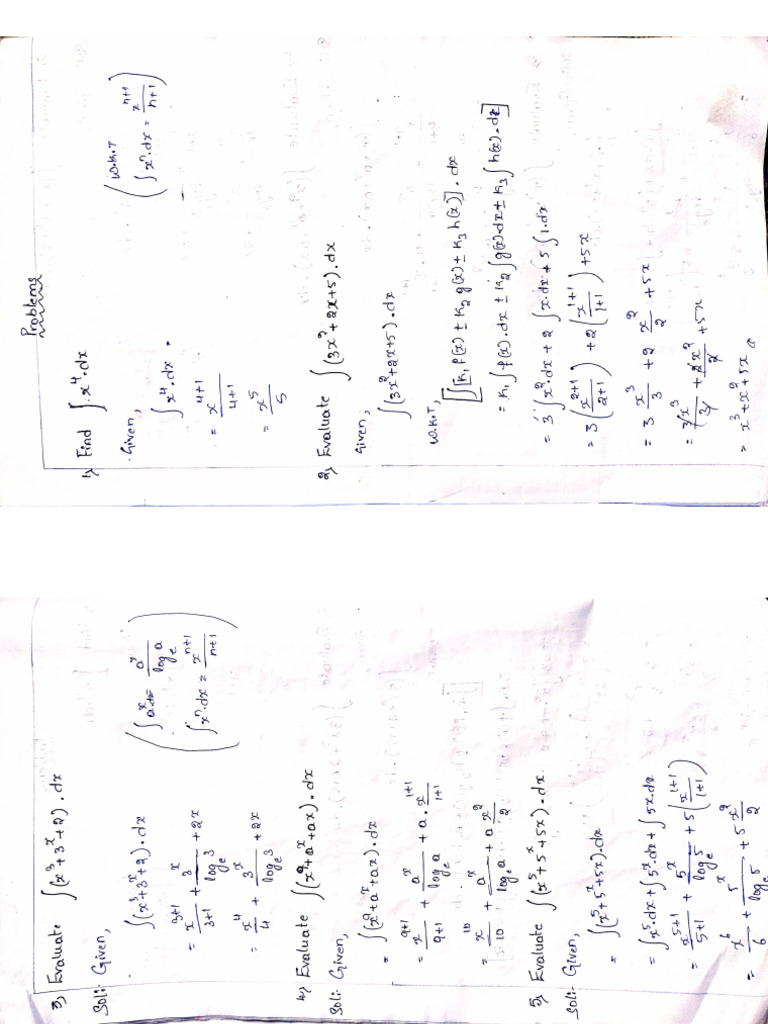 Problems
1) Find ∫x⁴.dx
Given,
(W.K.T
∫xⁿ.dx = xⁿ⁺¹/n+1)
∫x⁴.dx
= x⁴⁺¹/4+1
= x⁵/5
2) Evaluate ∫(3x²+2x+5).dx
Given,
∫(3x²+2x+5).dx
W.K.T,
[∫[k₁f(x) ± k₂g(x) ± k₃h(x)].dx
= k₁∫f(x).dx ± k₂∫g(x).dx ± k₃∫h(x).dx]
∴ = 3∫x².dx + 2∫x.dx + 5∫1.dx
= 3(x²⁺¹/2+1) + 2(x¹⁺¹/1+1) + 5x
= 3 x³/3 + 2 x²/2 + 5x
= 3x³/3 + 2x²/2 + 5x
= x³+x²+5x
3) Evaluate ∫(x³+3ˣ+2).dx
Sol:- Given,
(∫aˣdx = aˣ/logₑa
∫xⁿ.dx = xⁿ⁺¹/n+1)
∫(x³+3ˣ+2).dx
= x³⁺¹/3+1 + 3ˣ/logₑ3 + 2x
= x⁴/4 + 3ˣ/logₑ3 + 2x
4) Evaluate ∫(x⁹+aˣ+ax).dx
Sol:- Given,
= ∫(x⁹+aˣ+ax).dx
= x⁹⁺¹/9+1 + aˣ/logₑa + a.x¹⁺¹/1+1
= x¹⁰/10 + aˣ/logₑa + a x²/2
5) Evaluate ∫(x⁵+5ˣ+5x).dx
Sol:- Given,
= ∫(x⁵+5ˣ+5x).dx
= ∫x⁵.dx + ∫5ˣ.dx + ∫5x.dx
= x⁵⁺¹/5+1 + 5ˣ/logₑ5 + 5(x¹⁺¹/1+1)
= x⁶/6 + 5ˣ/logₑ5 + 5x²/2